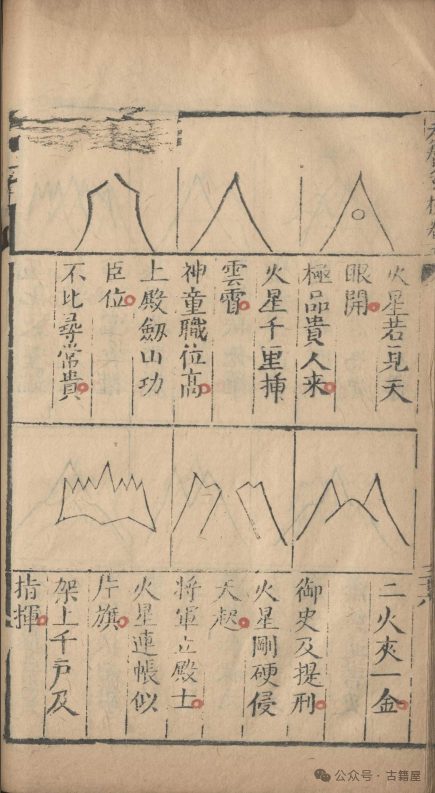 火星若見天
眼開
極品貴人来
火星千里揷
雲霄
神童職位高
上殿劔山功
臣位
不比尋常貴
二火夾一金
御史及提刑
火星剛硬侵
天起
將軍立殿士
火星連帳似
片旗
架上千戸及
指揮
公众号·古籍屋